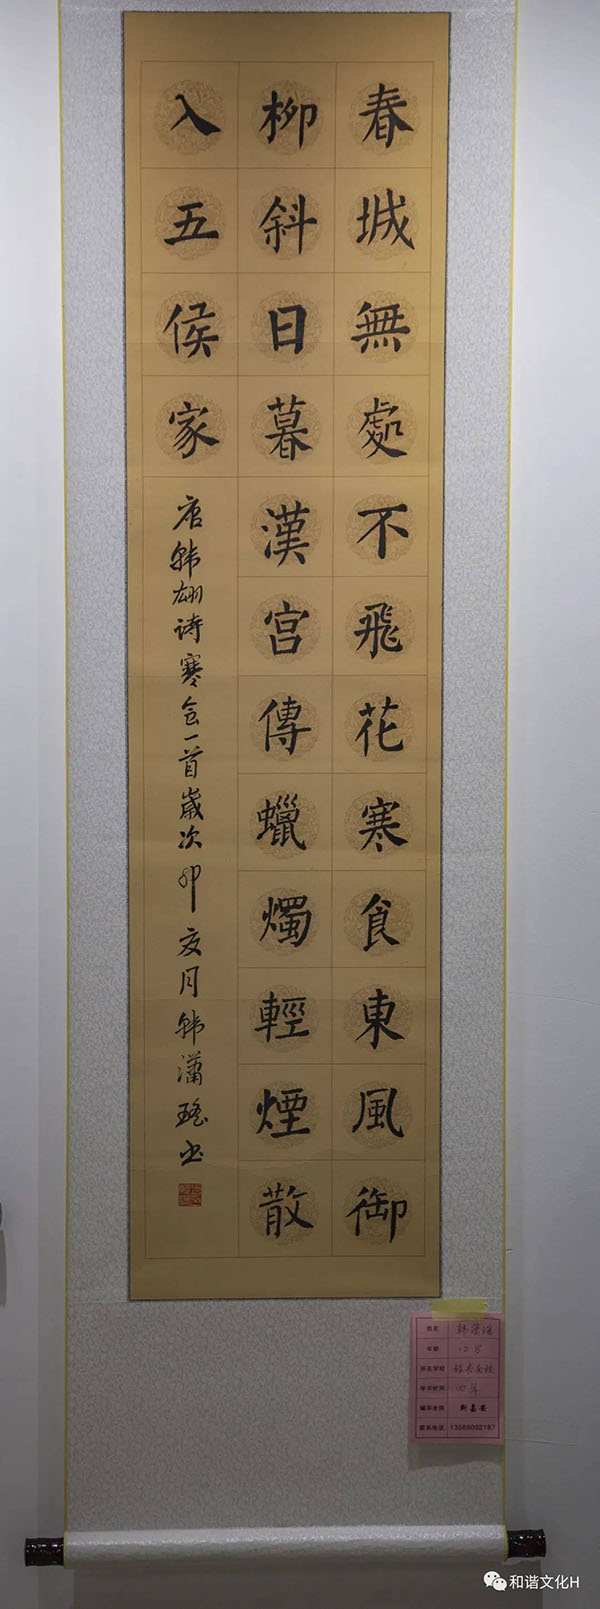 春城無處不飛花寒食東風御
柳斜日暮漢宮傳蠟燭輕煙散
入五侯家
唐韩翃诗寒食一首歲次卯夜月韩瀟瑤书
姓名 韩潇瑶
年龄 12岁
所在学校
学习时间 四年
辅导老师
联系电话 13586002187
和谐文化H